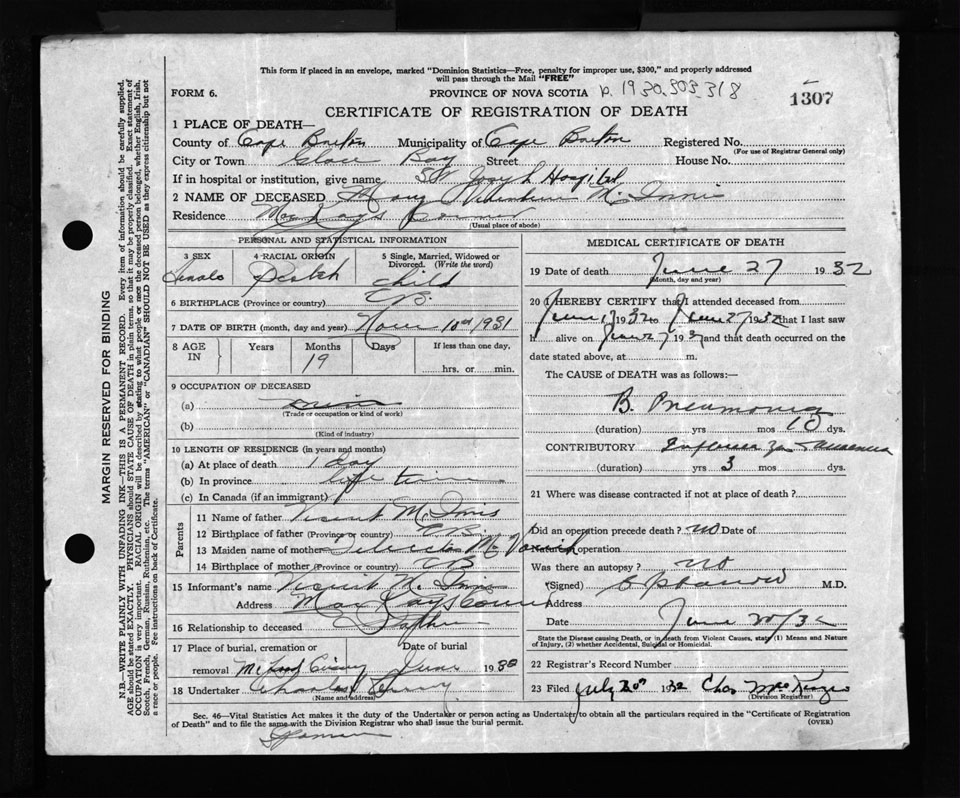 This form if placed in an envelope, marked "Dominion Statistics—Free, penalty for improper use, $300," and properly addressed
will pass through the Mail "FREE"
FORM 6. PROVINCE OF NOVA SCOTIA p. 1930.303.318
1307
CERTIFICATE OF REGISTRATION OF DEATH
1 PLACE OF DEATH—
County of Cape Breton Municipality of Cape Breton Registered No.
(For use of Registrar General only)
City or Town Glace Bay Street House No.
If in hospital or institution, give name St Joseph Hospital
2 NAME OF DECEASED Mary McInnis
Residence MacKays Corner
(Usual place of abode)
PERSONAL AND STATISTICAL INFORMATION
3 SEX 4 RACIAL ORIGIN 5 Single, Married, Widowed or Divorced. (Write the word)
Female Scotch Child
6 BIRTHPLACE (Province or country) C.B.
7 DATE OF BIRTH (month, day and year) Nov 10 1931
8 AGE IN Years Months Days If less than one day,
19 hrs. or min.
9 OCCUPATION OF DECEASED
(a)
(Trade or occupation or kind of work)
(b)
(Kind of industry)
10 LENGTH OF RESIDENCE (in years and months)
(a) At place of death 1 day
(b) In province life time
(c) In Canada (if an immigrant)
Parents
11 Name of father Vincent McInnis
12 Birthplace of father (Province or country) CB.
13 Maiden name of mother
14 Birthplace of mother (Province or country) CB
15 Informant's name Vincent McInnis
Address MacKays Corner
16 Relationship to deceased Father
17 Place of burial, cremation or removal Date of burial
June 1932
18 Undertaker Charles Curry
(Name and address)
MEDICAL CERTIFICATE OF DEATH
19 Date of death June 27 1932
(Month, day and year)
20 I HEREBY CERTIFY that I attended deceased from
June 17 1932 to June 27 1932 that I last saw
h alive on June 27 193 and that death occurred on the
date stated above, at m.
The CAUSE of DEATH was as follows:—
B. Pneumonia
(duration) yrs mos 10 dys.
CONTRIBUTORY Influenza
(duration) yrs 3 mos dys.
21 Where was disease contracted if not at place of death?
Did an operation precede death? no Date of
Nature of operation
Was there an autopsy? no
(Signed) M.D.
Address
Date June /32
State the Disease causing Death, or in death from Violent Causes, state (1) Means and Nature
of Injury, (2) whether Accidental, Suicidal or Homicidal.
22 Registrar's Record Number
23 Filed July 1932 Chas MacKenzie
(Division Registrar)
Sec. 46—Vital Statistics Act makes it the duty of the Undertaker or person acting as Undertaker to obtain all the particulars required in the "Certificate of Registration
of Death" and to file the same with the Division Registrar who shall issue the burial permit. (OVER)
MARGIN RESERVED FOR BINDING
N.B.—WRITE PLAINLY WITH UNFADING INK—THIS IS A PERMANENT RECORD. Every item of information should be carefully supplied.
AGE should be stated EXACTLY. PHYSICIANS should STATE CAUSE OF DEATH in plain terms, so that it may be properly classified. Exact statement of
OCCUPATION is very important. RACIAL ORIGIN will be described by stating to what people or race the deceased person belonged, whether English, Irish,
Scotch, French, German, Russian, Ruthenian, etc. The terms "AMERICAN" or "CANADIAN" SHOULD NOT BE USED as they express citizenship but not
a race or people. Fee instructions on back of Certificate.